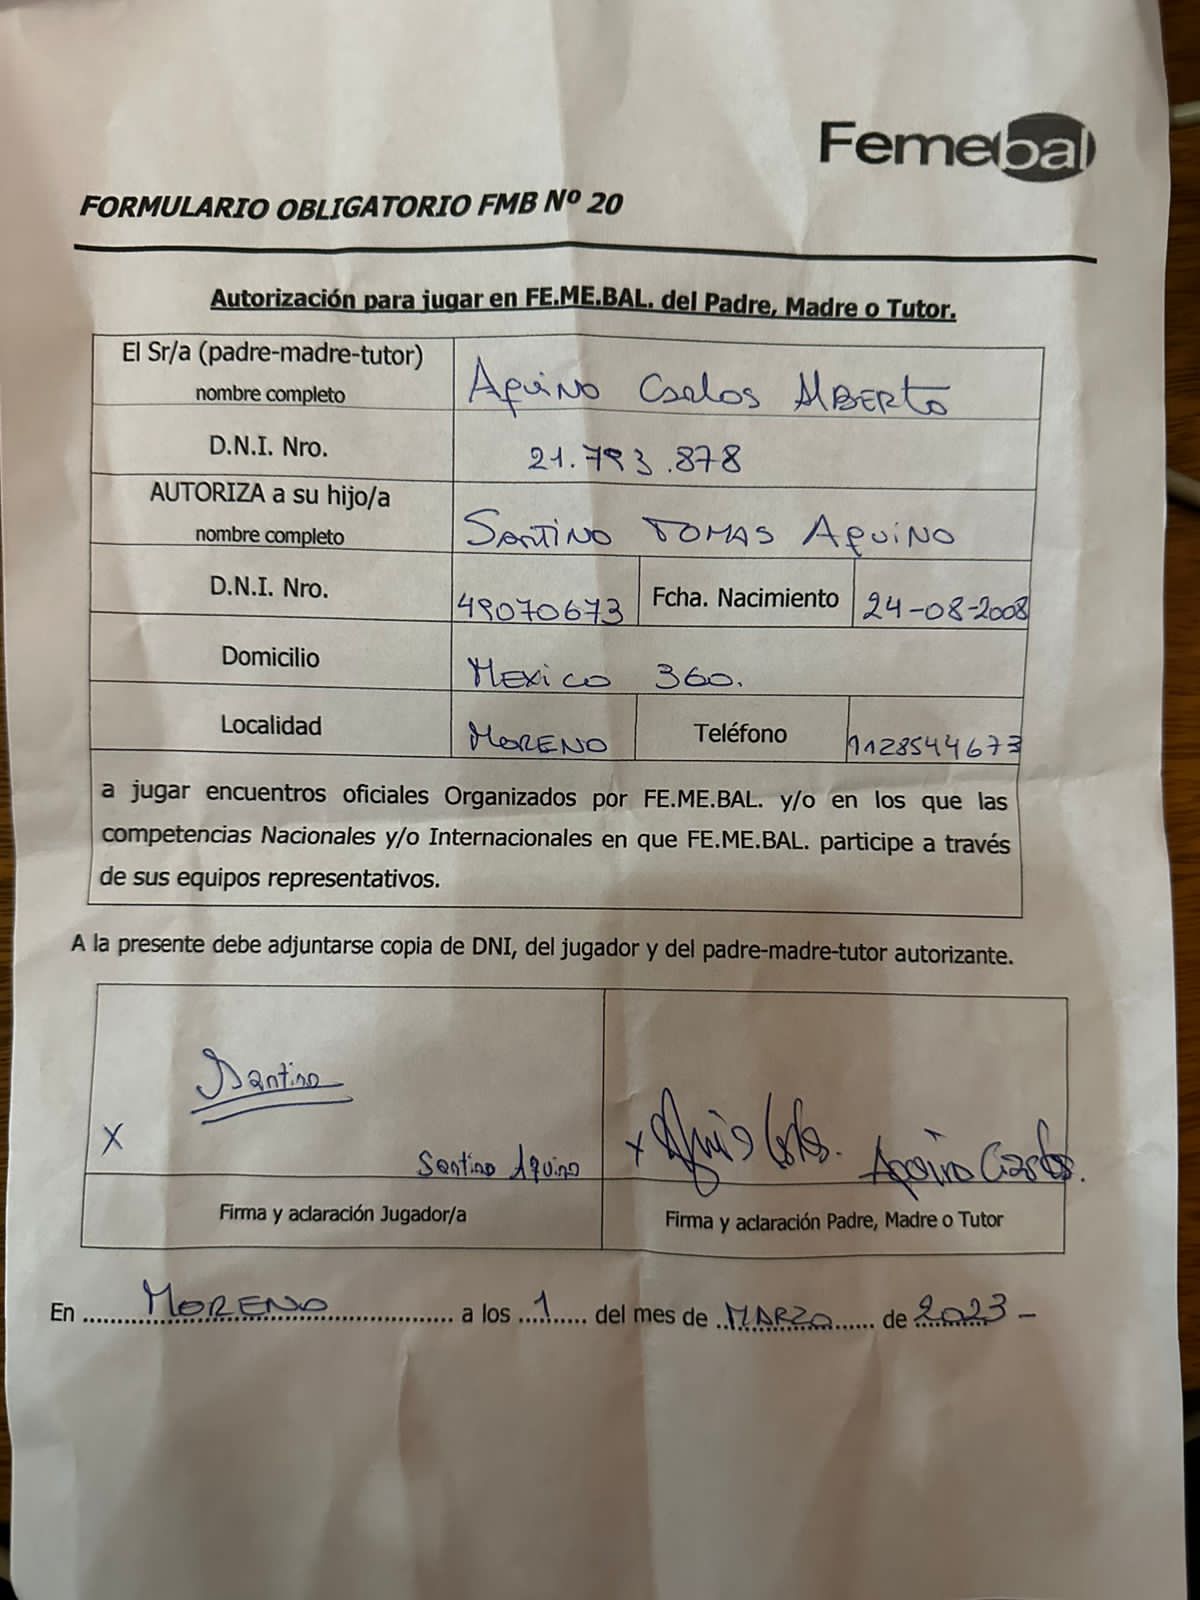 Femebal
FORMULARIO OBLIGATORIO FMB Nº 20
Autorización para jugar en FE.ME.BAL. del Padre, Madre o Tutor.
El Sr/a (padre-madre-tutor)
nombre completo
Aquino Carlos Alberto
D.N.I. Nro.
21.793.878
AUTORIZA a su hijo/a
nombre completo
Santino TOMAS Aquino
D.N.I. Nro.
49070673
Fcha. Nacimiento
24-08-2008
Domicilio
Mexico 360.
Localidad
MORENO
Teléfono
1128544673
a jugar encuentros oficiales Organizados por FE.ME.BAL. y/o en los que las
competencias Nacionales y/o Internacionales en que FE.ME.BAL. participe a través
de sus equipos representativos.
A la presente debe adjuntarse copia de DNI, del jugador y del padre-madre-tutor autorizante.
Santino
X
Santino Aquino
x Aquino Carlos.
Aquino Carlos.
Firma y aclaración Jugador/a
Firma y aclaración Padre, Madre o Tutor
En MORENO a los 1 del mes de MARZO de 2023 -